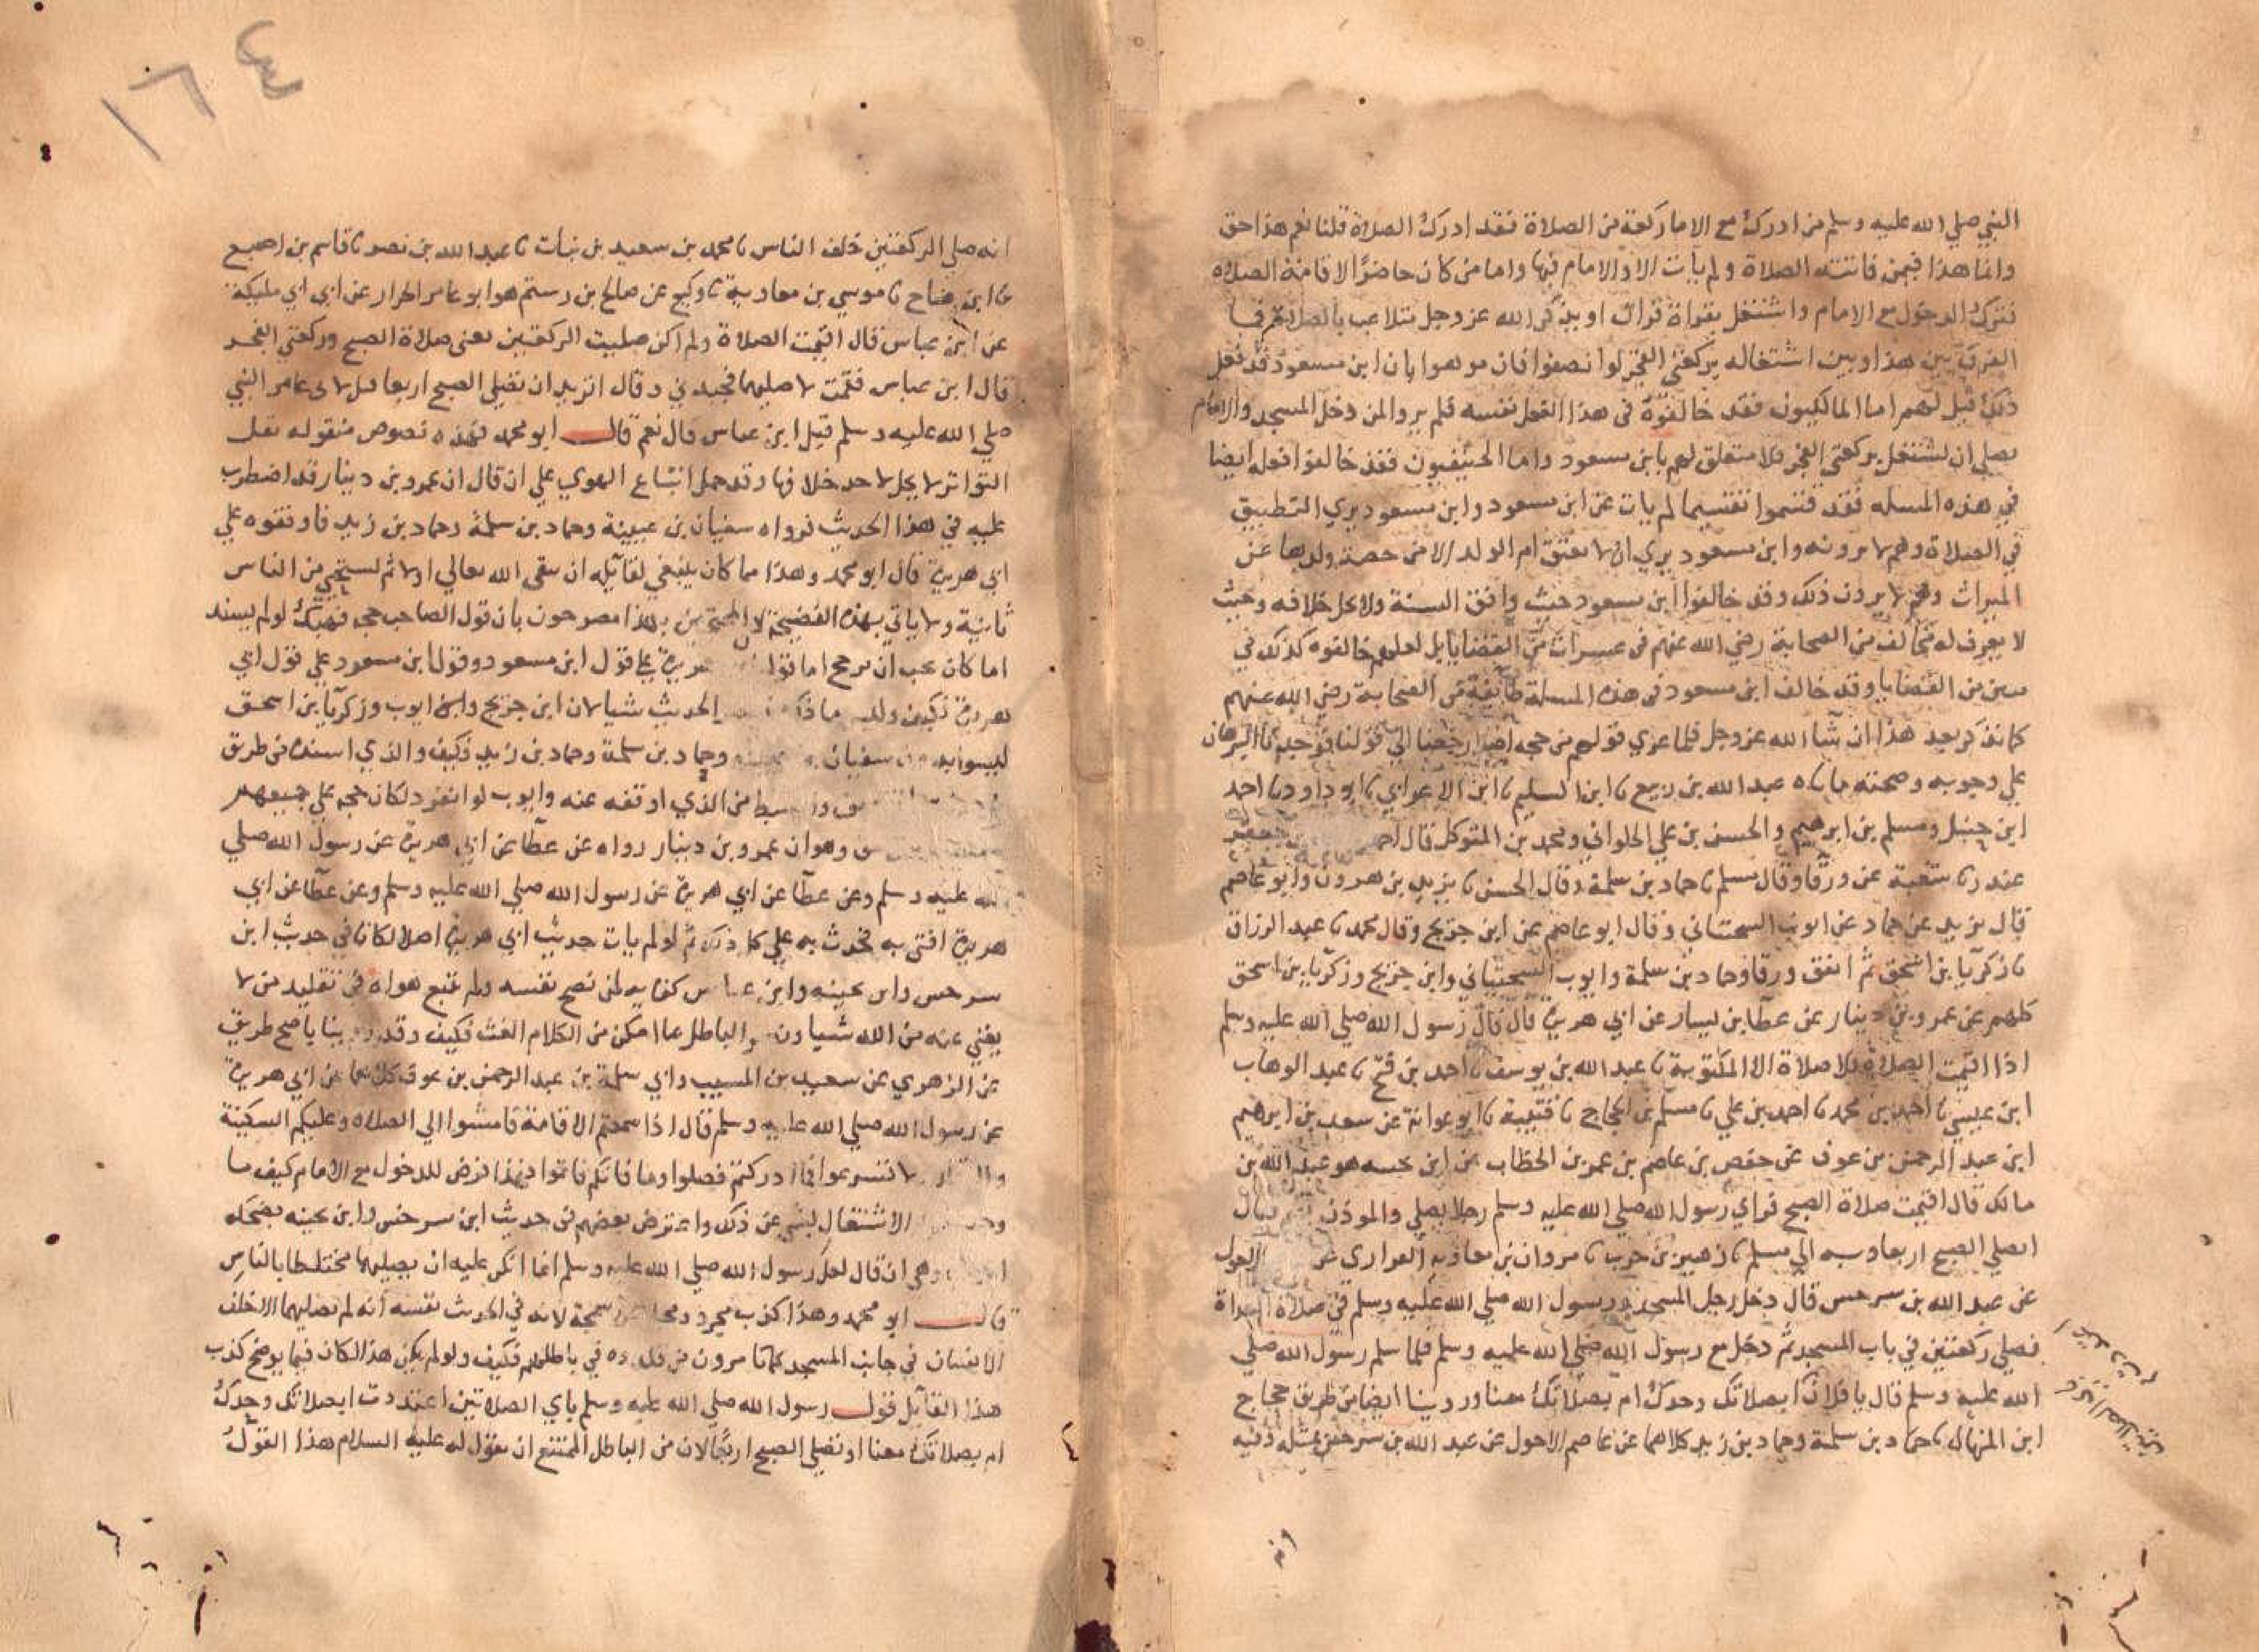 النبي صلي الله عليه وسلم من ادرك مع الامام ركعة من الصلاة فقد ادرك الصلاة قلنا نعم هذا حق
وانما هذا فيمن فاتته الصلاة ولم يات الا والامام فيها واما من كان حاضرًا لاقامة الصلاه
فترك الدخول مع الامام واشتغل بقراة قران او بذكر الله عز وجل متلاعب بالصلاة فما
الفرق بين هذا وبين اشتغاله بركعتي الفجر لو انصفوا فان موهوا بان ابن مسعود قد فعل
ذلك قيل لهم اما المالكيون فقد خالفوه في هذا الفعل نفسه فلم يروا لمن دخل المسجد والامام
يصلي ان يشتغل بركعتي الفجر فلا متعلق لهم بابن مسعود واما الحنيفيون فقد خالفوا فعله ايضا
في هذه المسله فقد قسموا تقسيما لم يات عن ابن مسعود وابن مسعود يري التطبيق
في الصلاة وهم لا يرونه وابن مسعود يري ان لا تعتق ام الولد الا من حصة ولدها من
الميراث وهم لا يرون ذلك وقد خالفوا ابن مسعود حيث وافق السنة ولا يحل خلافه وحيث
لا يعرف له مخالف من الصحابة رضي الله عنهم في عشرات من القضايا بل لعلهم خالفوه كذلك في
مئين من القضايا وقد خالف ابن مسعود في هذه المسلة طايفة من الصحابة رضي الله عنهم
كما نذكر بعد هذا ان شا الله عز وجل فلما عري قولهم من حجه رجعنا الي قولنا فوجدنا البرهان
علي وجوبه وصحته ما ناه عبد الله بن ربيع نا ابن السليم نا ابن الاعرابي نا ابو داود نا احمد
ابن حنبل ومسلم بن ابرهيم والحسن بن علي الحلواني ومحمد بن المتوكل قال احمد بن جعفر
غندر نا شعبة عن ورقا وقال مسلم نا حماد بن سلمة وقال الحسن نا يزيد بن هرون وابو عاصم
قال يزيد عن حماد عن ايوب السختياني وقال ابو عاصم عن ابن جريج وقال محمد نا عبد الرزاق
نا زكريا بن اسحق ثم اتفق ورقا وحماد بن سلمة وايوب السختياني وابن جريج وزكريا بن اسحق
كلهم عن عمرو بن دينار عن عطا بن يسار عن ابي هريرة قال قال رسول الله صلي الله عليه وسلم
اذا اقيمت الصلاة فلا صلاة الا المكتوبة نا عبد الله بن يوسف نا احمد بن فتح نا عبد الوهاب
ابن عيسي نا احمد بن محمد نا احمد بن علي نا مسلم بن الحجاج نا قتيبة نا ابو عوانة عن سعد بن ابرهيم
ابن عبد الرحمن بن عوف عن حفص بن عاصم بن عمر بن الخطاب عن ابن بحينه هو عبد الله بن
مالك قال اقيمت صلاة الصبح فراي رسول الله صلي الله عليه وسلم رجلا يصلي والموذن يقيم فقال
اتصلي الصبح اربعا وبه الي مسلم نا زهير بن حرب نا مروان بن معاوية الفزاري عن الاحول
عن عبد الله بن سرجس قال دخل رجل المسجد ورسول الله صلي الله عليه وسلم في صلاة الغداة
فصلي ركعتين في باب المسجد ثم دخل مع رسول الله صلي الله عليه وسلم فلما سلم رسول الله صلي
الله عليه وسلم قال يا فلان ابصلاتك وحدك ام بصلاتك معنا وروينا ايضا من طريق حجاج
ابن المنهال نا حماد بن سلمة وحماد بن زيد كلاهما عن عاصم الاحول عن عبد الله بن سرجس بمثله وفيه
انه صلي الركعتين خلف الناس نا محمد بن سعيد بن نبات نا عبد الله بن نصر نا قاسم بن اصبغ
نا ابن وضاح نا موسي بن معاوية نا وكيع عن صالح بن رستم هو ابو عامر الخزاز عن ابن ابي مليكة
عن ابن عباس قال اقيمت الصلاة ولم اكن صليت الركعتين يعني صلاة الصبح وركعتي الفجر
قال ابن عباس فقمت لاصليهما فجبذني وقال اتريد ان تصلي الصبح اربعا قيل لابي عامر النبي
صلي الله عليه وسلم قيل ابن عباس قال نعم قال ابو محمد فهذه نصوص منقوله نقل
التواتر لا يحل لاحد خلافها وقد حمل اتباع الهوي علي ان قال ان عمرو بن دينار قد اضطرب
عليه في هذا الحديث فرواه سفيان بن عيينة وحماد بن سلمة وحماد بن زيد فاوقفوه علي
ابي هريرة قال ابو محمد وهذا مما كان ينبغي لقايله ان يتقي الله تعالي اولا ثم يستحي من الناس
ثانية ولا ياتي بهذه الفضيحة لان المحتجين بهذا مصرحون بان قول الصاحب حجه فهبك لو لم يسند
اما كان يجب ان يرجح اما قول هريرة علي قول ابن مسعود وقول ابن مسعود علي قول ابي
هريرة فكيف وليس ماذكر الحديث شيا لان ابن جريج وايوب وزكريا بن اسحق
ليسوا بدون سفيان بن عيينه وحماد بن سلمة وحماد بن زيد فكيف والذي اسنده من طريق
من الذي اوقفه عنه وايوب لو انفرد لكان حجه علي جميعهم
وهو ان عمرو بن دينار رواه عن عطا عن ابي هريرة عن رسول الله صلي
الله عليه وسلم وعن عطا عن ابي هريرة عن رسول الله صلي الله عليه وسلم وعن عطا عن ابي
هريرة افتي به فحدث به علي كل ذلك ثم لو لم يات حديث ابي هريرة اصلا لكان في حديث ابن
سرجس وابن بحينه وابن عباس كفايه لمن نصح نفسه ولم يتبع هواه في تقليد من لا
يغني عنه من الله شيا والباطل بما امكن من الكلام الغث فكيف وقد روينا باصح طريق
عن الزهري عن سعيد بن المسيب وابي سلمة بن عبد الرحمن بن عوف كلاهما عن ابي هريرة
عن رسول الله صلي الله عليه وسلم قال اذا سمعتم الاقامة فامشوا الي الصلاه وعليكم السكينة
والوقار ولا تسرعوا فما ادركتم فصلوا وما فاتكم فاتموا فهذا فرض للدخول مع الامام كيف ما
الاشتغال بشي عن ذلك واعترض بعضهم في حديث ابن سرجس وابن بحينه بضحكه
وهي ان قال لعل رسول الله صلي الله عليه وسلم انما انكر عليه ان يصليهما مختلطا بالناس
قال ابو محمد وهذا كذب مجرد سمجة لانه في الحديث نفسه انه لم يصليهما الا خلف
الناس في جانب المسجد كما يامرون من قلدوه في باطلهم فكيف ولو لم يكن هذا لكان فيما يوضح كذب
هذا القايل قول رسول الله صلي الله عليه وسلم باي الصلاتين اعتددت ابصلاتك وحدك
ام بصلاتك معنا او تصلي الصبح اربعًا لان من الباطل الممتنع ان يقول له عليه السلام هذا القول